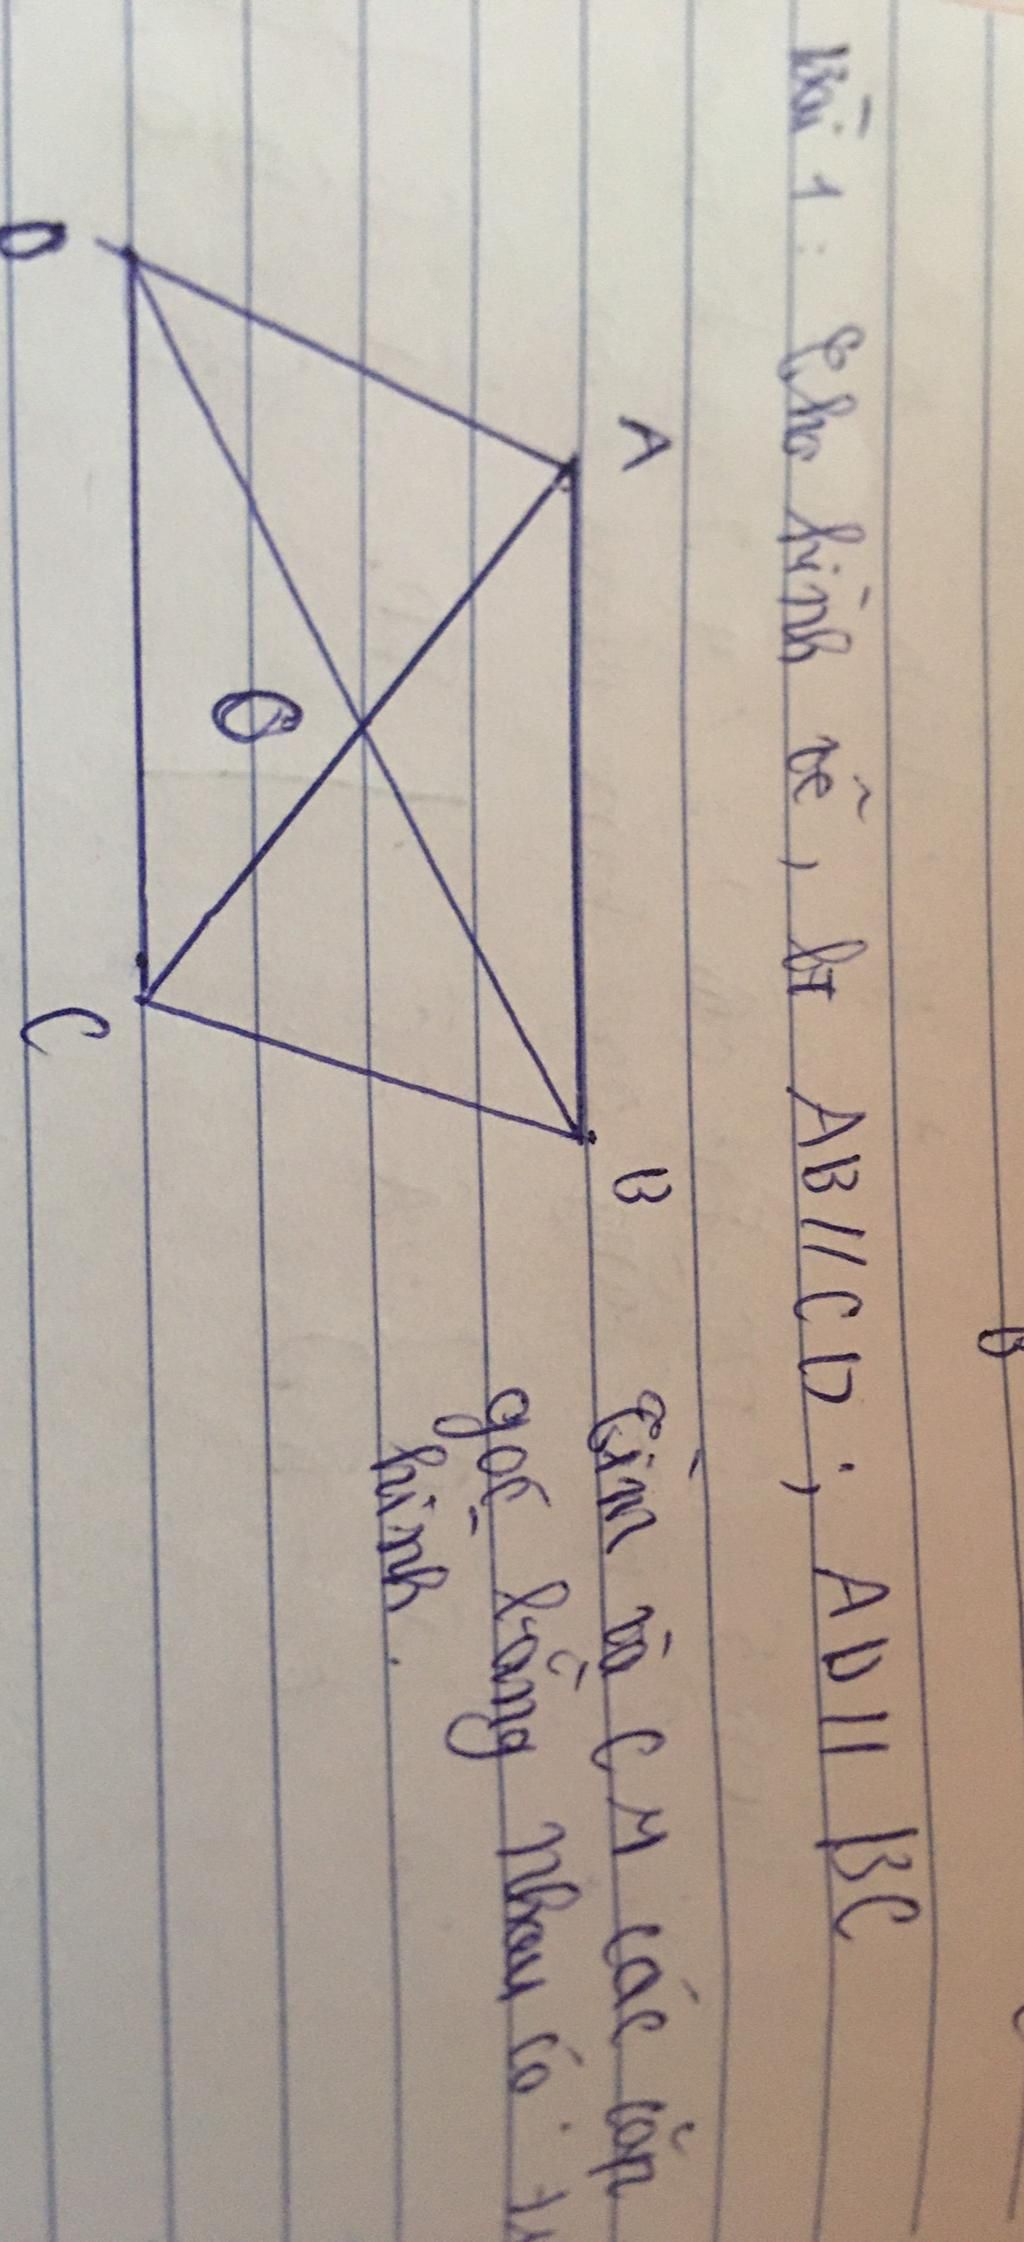 Bài 1 : Cho hình vẽ, bt AB // CD ; AD // BC
A
B
Tìm và CM các cặp
góc bằng nhau có
hình.
O
D
C
B